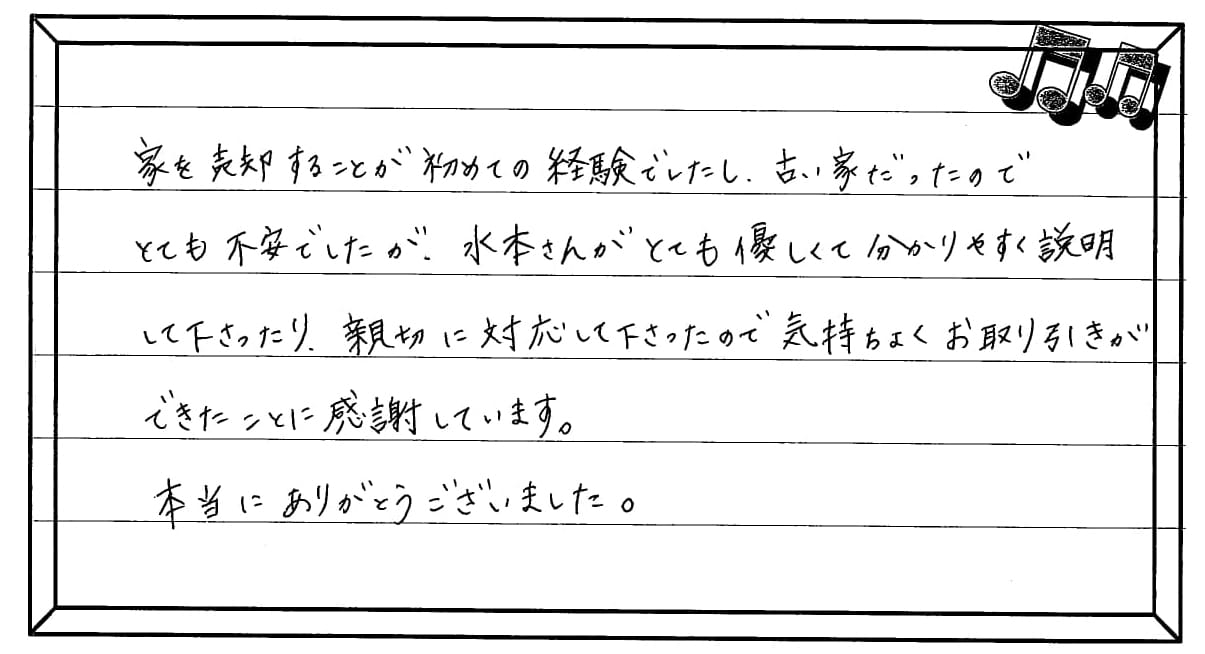 家を売却することが初めての経験でしたし、古い家だったので
とても不安でしたが、水本さんがとても優しくて分かりやすく説明
して下さったり、親切に対応して下さったので気持ちよくお取り引きが
できたことに感謝しています。
本当にありがとうございました。